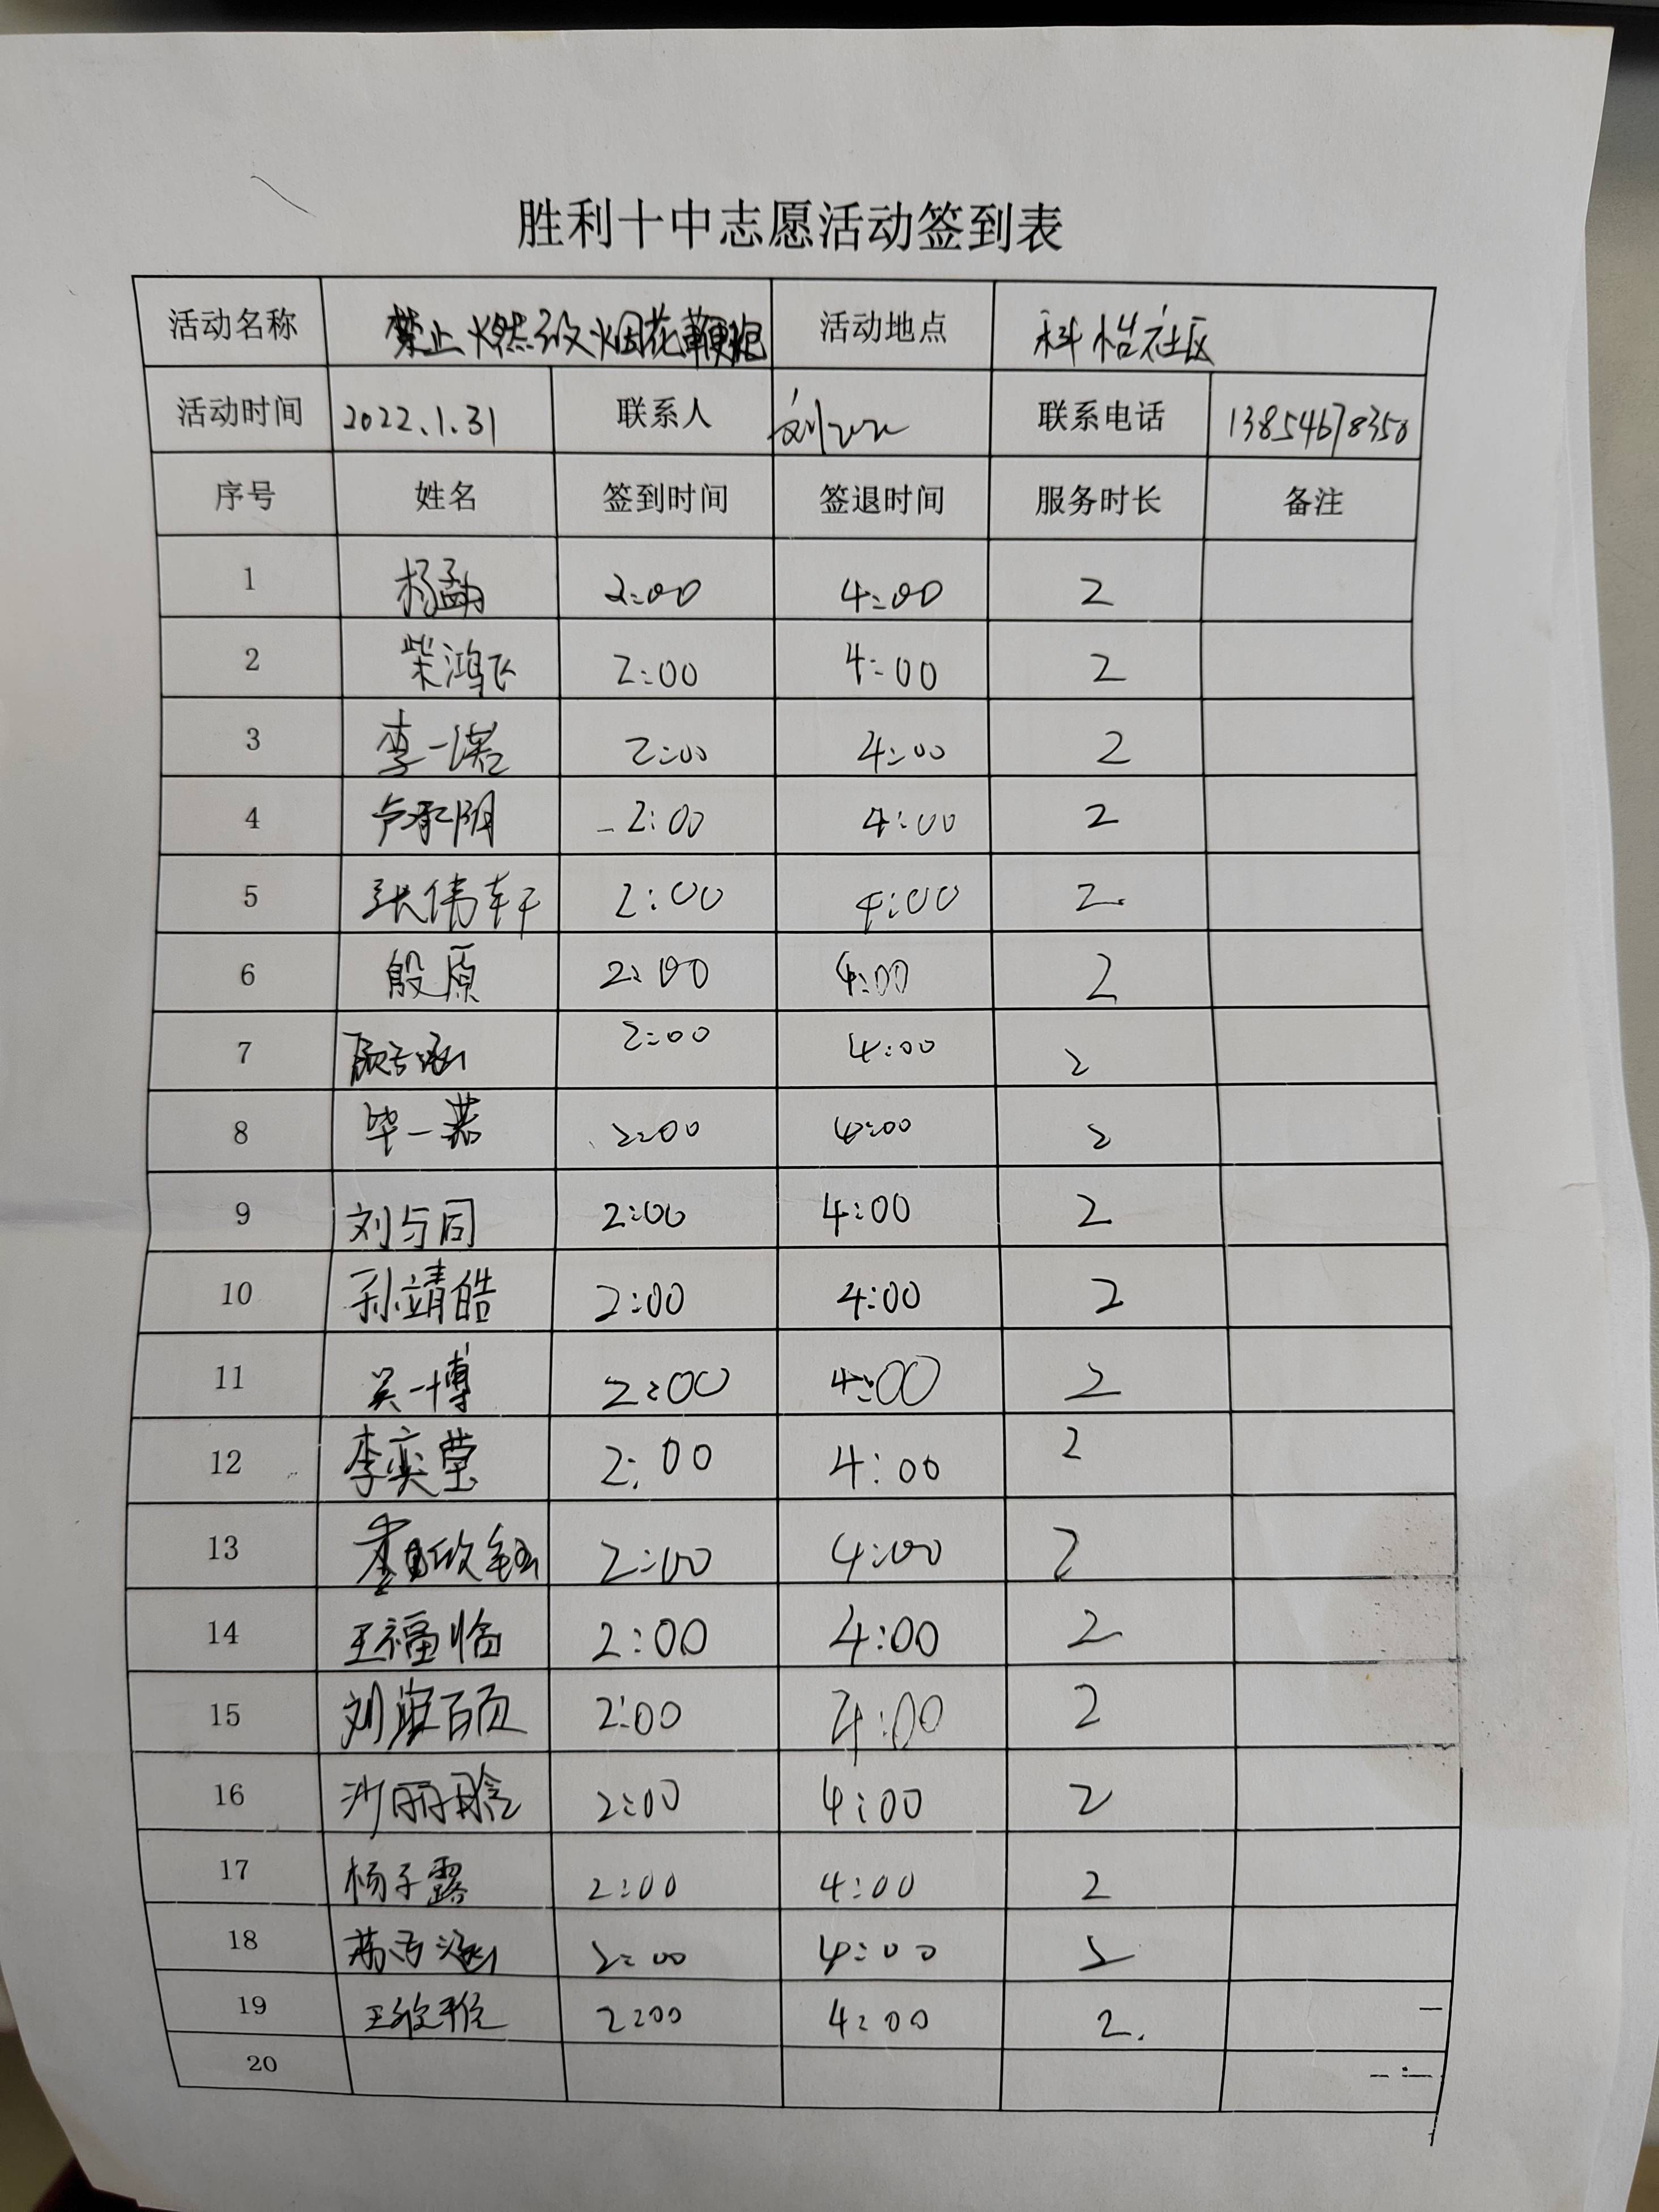 胜利十中志愿活动签到表
活动名称 禁止燃放烟花鞭炮 活动地点 科怡社区
活动时间 2022.1.31 联系人 刘 联系电话 13854678358
序号 姓名 签到时间 签退时间 服务时长 备注
1 杨 2:00 4:00 2
2 柴鸿飞 2:00 4:00 2
3 李一诺 2:00 4:00 2
4 卢承阴 2:00 4:00 2
5 张伟轩 2:00 4:00 2
6 殷原 2:00 4:00 2
7 2:00 4:00 2
8 毕一 2:00 4:00 2
9 刘与同 2:00 4:00 2
10 孙靖皓 2:00 4:00 2
11 吴一博 2:00 4:00 2
12 李奕莹 2:00 4:00 2
13 2:00 4:00 2
14 王福临 2:00 4:00 2
15 刘 2:00 4:00 2
16 沙丽晗 2:00 4:00 2
17 杨子露 2:00 4:00 2
18 2:00 4:00 2
19 王 2:00 4:00 2
20